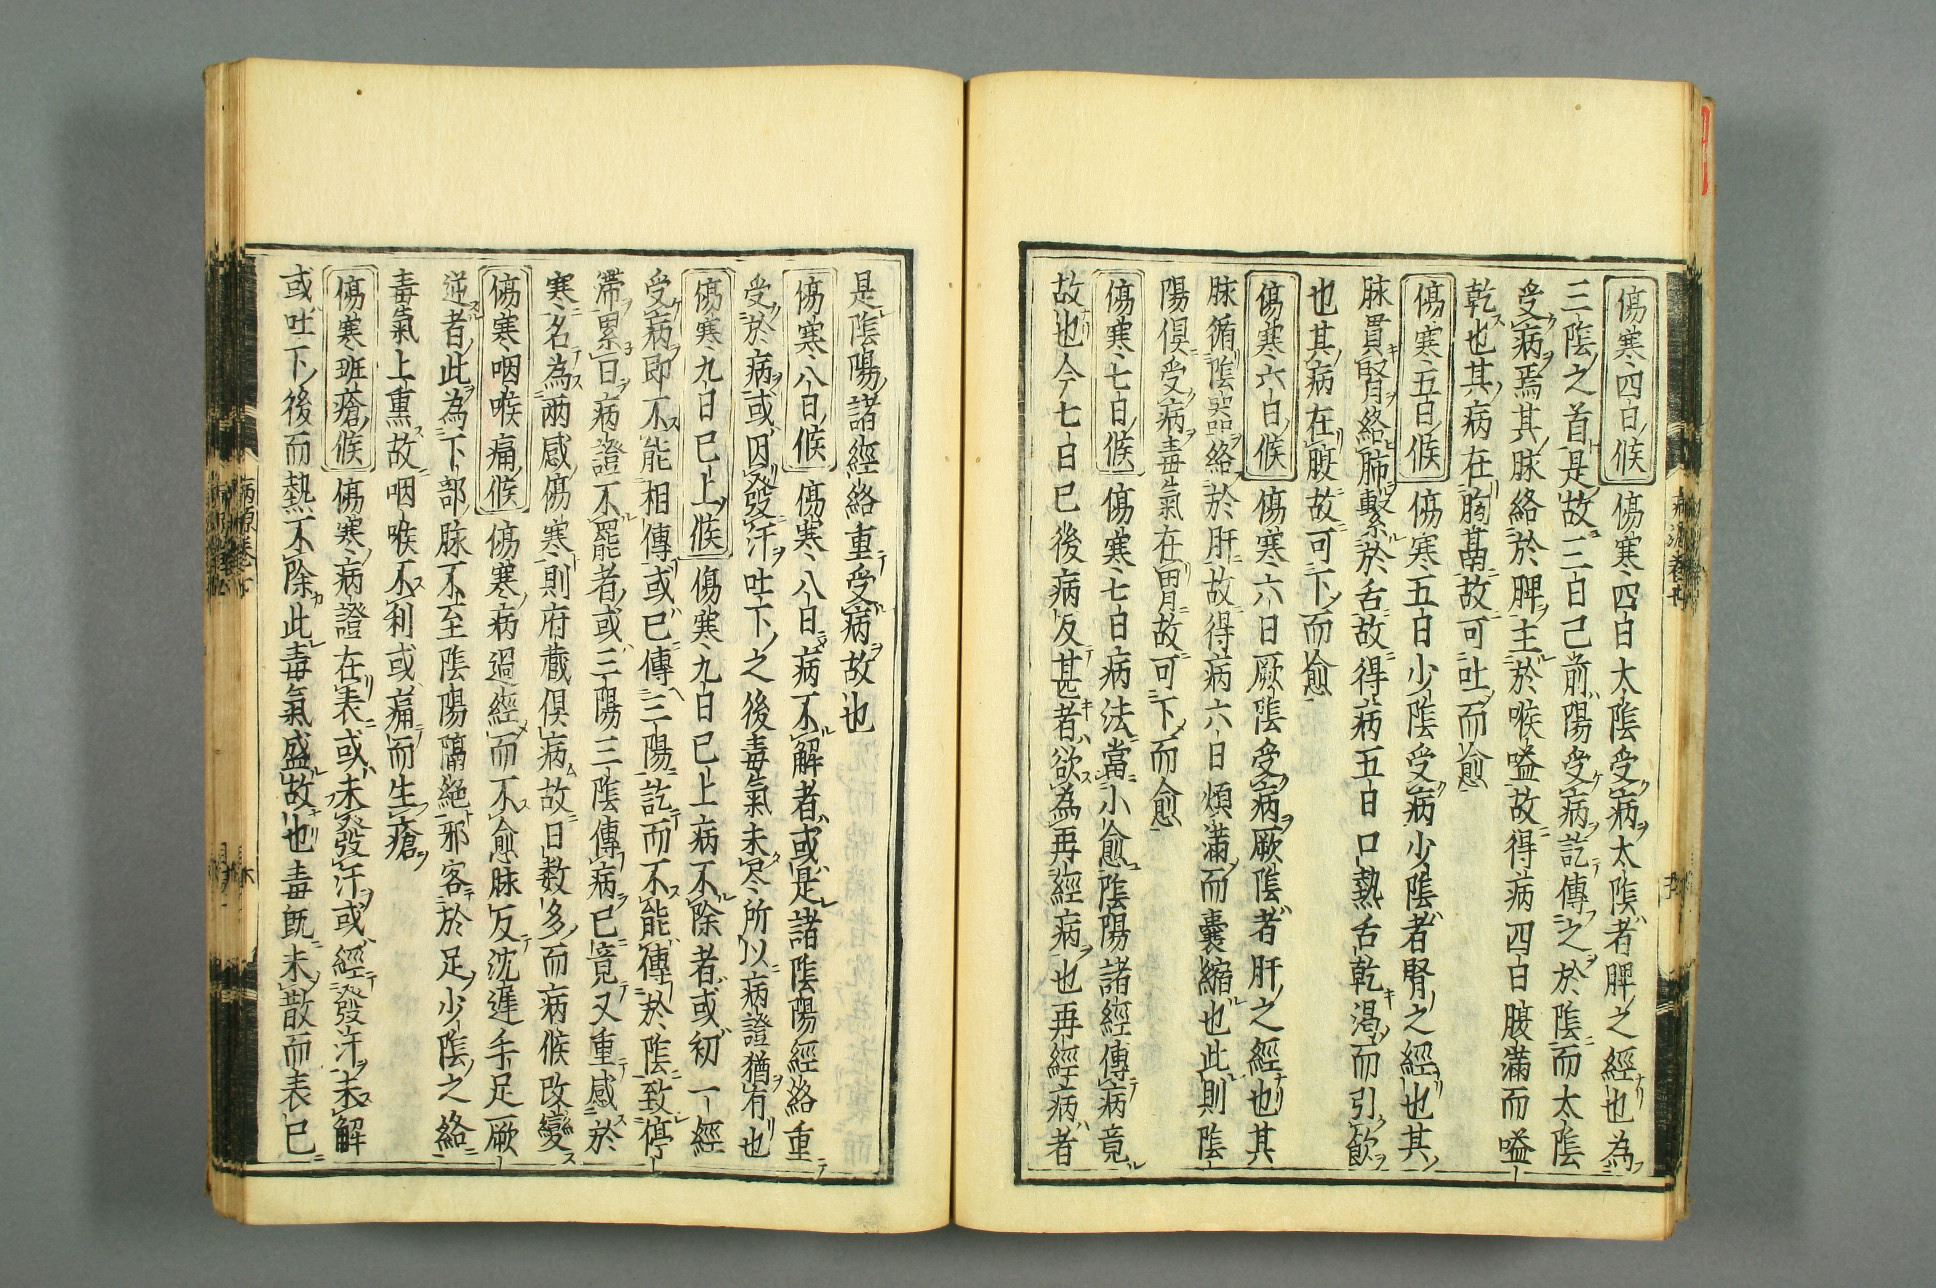 傷寒四日候 傷寒四日太陰受病太陰者脾之經也為
三陰之首是故三日已前陽受病訖傳之於陰而太陰
受病焉其脉絡於脾主於喉嗌故得病四日腹滿而嗌
乾也其病在胸膈故可吐而愈
傷寒五日候 傷寒五日少陰受病少陰者腎之經也其
脉貫腎絡肺繫於舌故得病五日口熱舌乾渴而引飲
也其病在腹故可下而愈
傷寒六日候 傷寒六日厥陰受病厥陰者肝之經也其
脉循陰器絡於肝故得病六日煩滿而囊縮也此則陰
陽俱受病毒氣在胃故可下而愈
傷寒七日候 傷寒七日病法當小愈陰陽諸經傳病竟
故也今七日已後病反甚者欲為再經病也再經病者
是陰陽諸經絡重受病故也
傷寒八日候 傷寒八日病不解者或是諸陰陽經絡重
受於病或因發汗吐下之後毒氣未尽所以病證猶有也
傷寒九日已上候 傷寒九日已上病不除者或初一經
受病即不能相傳或已傳三陽訖而不能傳於陰致停
滯累日病證不罷者或三陽三陰傳病已竟又重感於
寒名為兩感傷寒則府藏俱病故日數多而病候改變
傷寒咽喉痛候 傷寒病過經而不愈脉反沈遲手足厥
逆者此為下部脉不至陰陽隔絶邪客於足少陰之絡
毒氣上熏故咽喉不利或痛而生瘡
傷寒班瘡候 傷寒病證在表或未發汗或經發汗未解
或吐下後而熱不除此毒氣盛故也毒既未散而表已